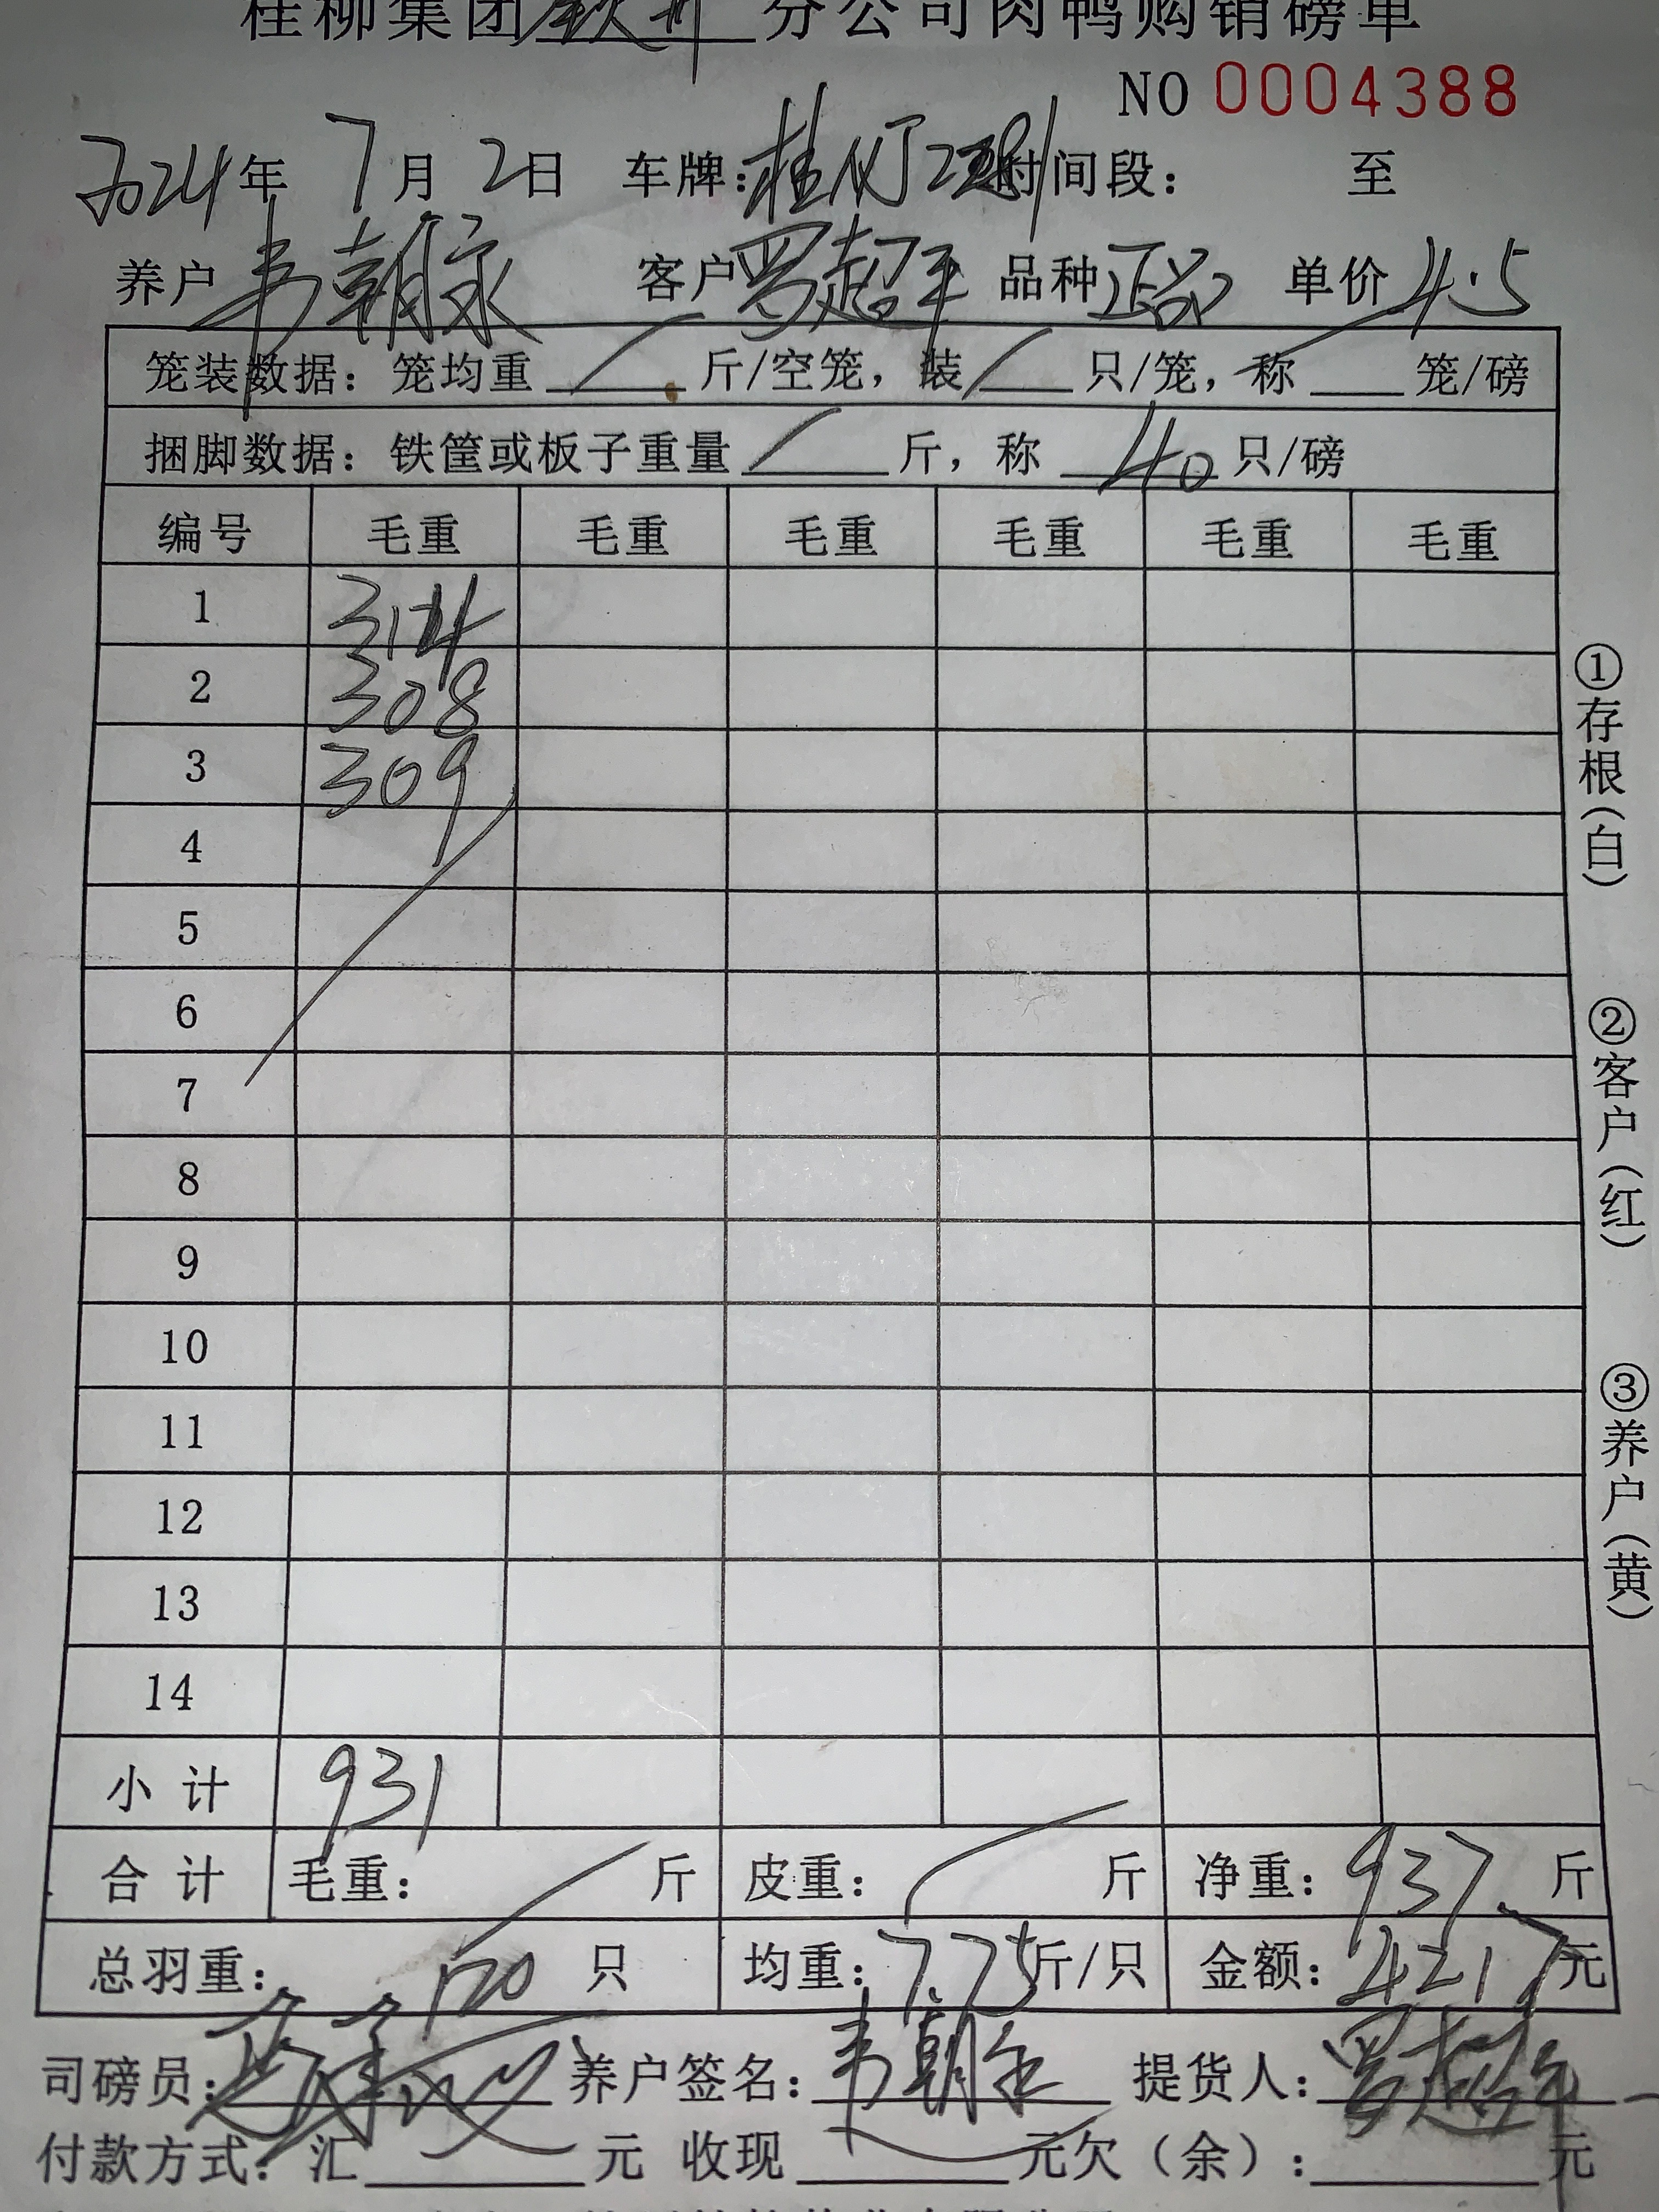 桂柳集团钦州分公司肉鸭购销磅单
NO 0004388
2024年 7月 2日 车牌: 时间段: 至
养户 韦朝永 客户 罗超平 品种 正品 单价 4.5
笼装数据: 笼均重 斤/空笼, 装 只/笼, 称 笼/磅
捆脚数据: 铁筐或板子重量 斤, 称 40 只/磅
编号 毛重 毛重 毛重 毛重 毛重 毛重
1 314
2 308
3 309
4
5
6
7
8
9
10
11
12
13
14
小计 931
合计 毛重: 斤 皮重: 斤 净重: 937 斤
总羽重: 120 只 均重: 7.75 斤/只 金额: 4217 元
司磅员: 养户签名: 韦朝永 提货人: 罗超平
付款方式: 汇 元 收现 元欠(余): 元
①存根(白)
②客户(红)
③养户(黄)